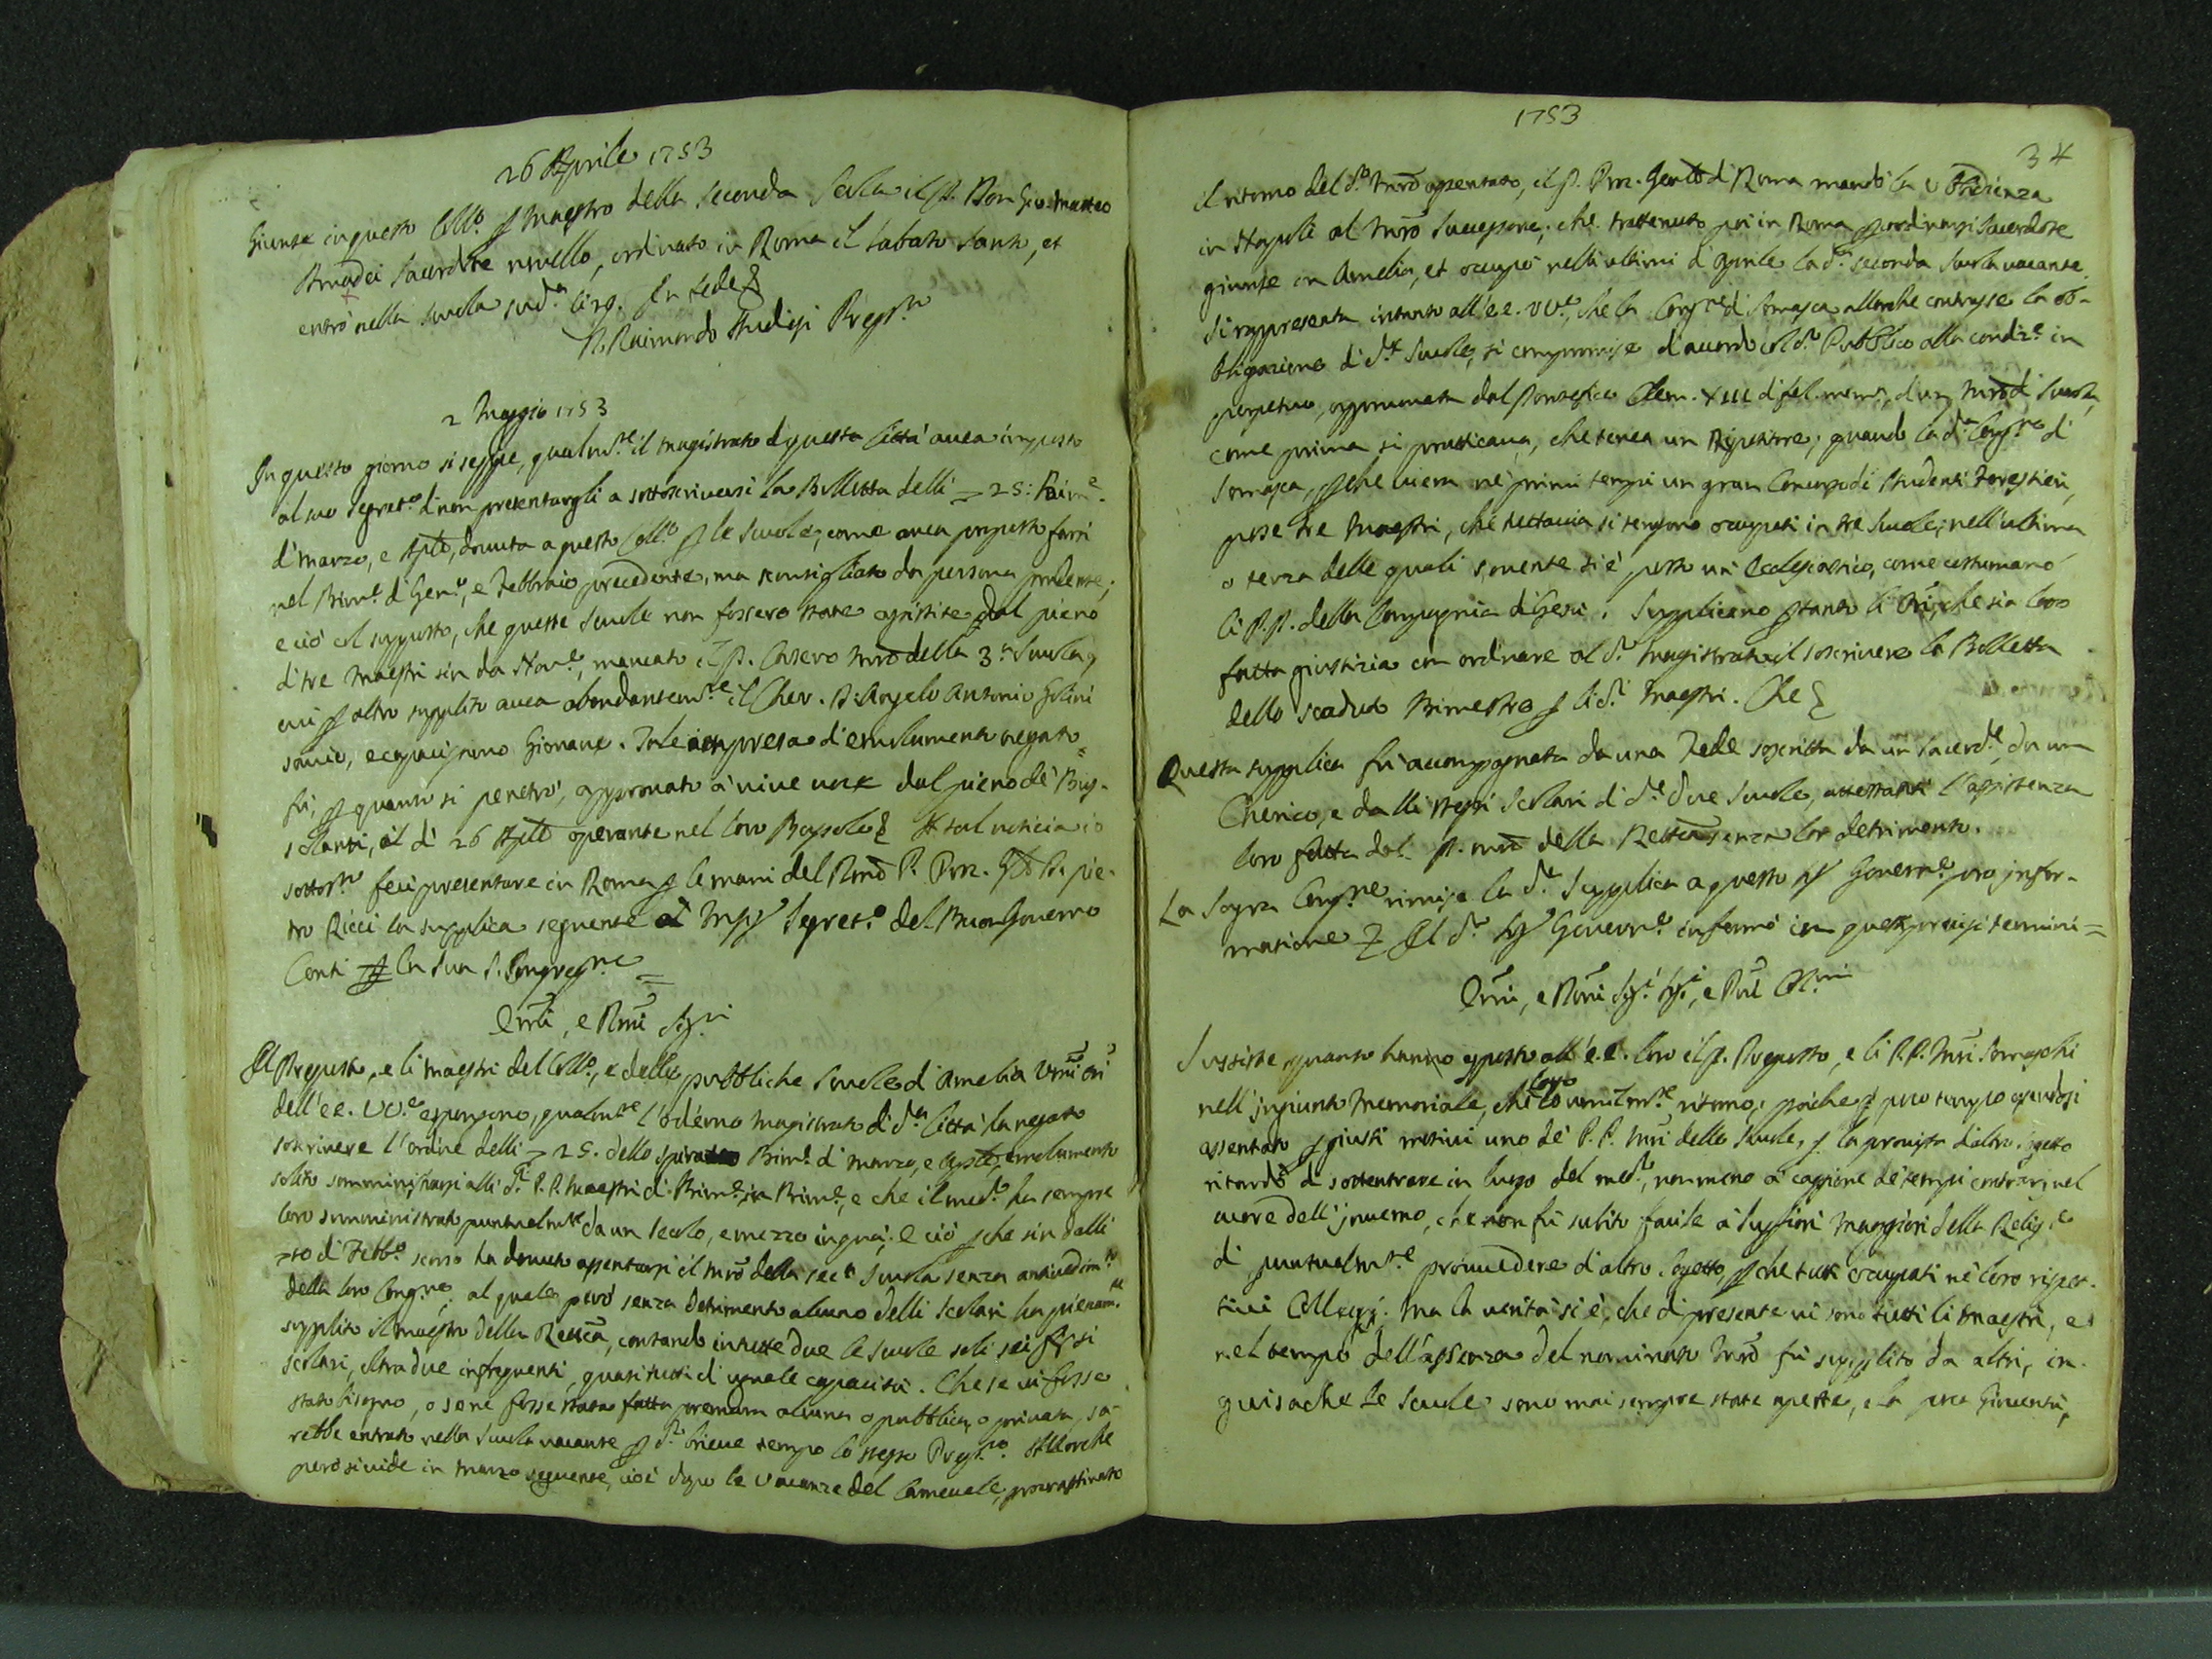 26 Aprile 1753
Giunse in questo Coll.º p Maestro della Seconda Scola il P. Don Gio: Matteo
sacerdote novello, ordinato in Roma il Sabato Santo, et
entrò nella scuola sud.ª In fede &
D. Raimondo Prep.to
2 Maggio 1753
In questo giorno si seppe, qualm.te il magistrato di questa Città avea imposto
al suo Segret.º di non presentargli a sottoscriversi la Bolletta delli 25: Bim.e
di Marzo, e Aple, dovuta a questo Coll.º p le Scuole; come avea proposto farsi
nel Bim.e di Gen.º, e Febbraio precedente, ma sconsigliato da persona prudente;
e ciò col supposto, che queste Scuole non fossero state assistite dal pieno
di tre Maestri sin da Nov.e, mancato il P. Casero mro della 3.ª Scuola,
cui p altro supplito avea abondantem.te il Cher. D. Angelo Antonio
savio, e capacissimo Giovane. Tale impresa d'emolumento negato
fu, p quanto si penetrò, approvato a vive voce dal pieno de' Bus-
solanti, il dì 26 Aple operante nel loro Bussolo & A tal noticia io
sottos.to feci presentare in Roma p le mani del Rmo P. Proc. Gle D. Pie-
tro Ricci la supplica seguente al Segret.º del Buon Governo
Conti p la sua S. Congreg.ne =
Emi, e Rmi Sig.ri
Il Preposto, e li Maestri del Coll.º, e delle pubbliche Scuole d'Amelia Umi Ori
dell'E.E. VV.e espongono, qualm.te l'odierno Magistrato di d.ª Città ha negato
soscrivere l'ordine delli 25. dello spirato Bim.e di Marzo, e Aple, emolumento
solito somministrarsi alli d.i P.P. Maestri di Bim.e in Bim.e, e che il med.º ha sempre
loro somministrato puntualm.te da un secolo, e mezzo in qua; e ciò p che sin dalli
10 di Febb.º scorso ha dovuto assentarsi il mro della sec.ª Scuola senza antivedim.to
della loro Cong.ne, al quale però senza detrimento alcuno delli Scolari ha pienam.te
supplito il Maestro della Rettca, contando in tutte due le Scuole soli sei fissi
scolari, oltra due infrequenti, quasi tutti di uguale capacità. Che se vi fosse
stato bisogno, o se ne fosse stata fatta premura alcuna o pubblica, o privata, sa-
rebbe entrato nella Scuola vacante p d.º brieve tempo lo stesso Prep.to. Allorche
però si vide in Marzo seguente, cioè dopo le vacanze del Carnevale, procrastinato
1753
34
il ritorno del d.º mro assentato, il P. Proc. Gnle di Roma mandò la Obbedienza
in Napoli al mro Successore; che trattenuto poi in Roma p ordinarsi Sacerdote
giunse in Amelia, et occupò nelli ultimi d'Aprile la d.ª seconda Scuola vacante.
Si rappresenta intanto all'E.E. VV.e, che la Cong.ne di Somasca allorche contrasse la ob-
bligazione di d.e Scuole, si compromise d'accordo col d.º Pubblico alla condiz.e in
perpetuo, approvata dal Pontefice Clem. XIII di fel. mem.ª, d'un mro di Scuola,
come prima si pratticava, che tenea un Ripetitore; quando la d.ª Cong.ne di
Somasca, p che viera ne' primi tempi un gran Concorso di Studenti Forestieri,
pose tre Maestri, che tuttavia si tengono occupati in tre Scuole; nell'ultima
o terza delle quali sovente si è posto un Ecclesiastico, come costumano
li P.P. della Compagnia di Gesù. Supplicano p tanto li Ori, che sia loro
fatta giustizia con ordinare al d.º Magistrato il soscrivere la Bolletta
dello scaduto Bimestre p li d.i Maestri. Che &
Questa supplica fu accompagnata da una Fede soscritta da un Sacerd.te, da un
Cherico, e dalli stessi Scolari di d.e due Scuole, attestanti l'assistenza
loro fatta dal P. mro della Rettca senza lor detrimento.
La Sagra Cong.ne rimise la d.ª Supplica a questo Sig Govern.e pro infor-
matione & Il d.º Sig Govern.e informò in questi precisi termini =
Emi, e Rmi Sig.i Sig.i, e Pni Col.mi
Sussiste quanto hanno esposto all'E.E. loro il P. Preposto, e li P.P. Mri Somaschi
nell'ingiunto Memoriale, che loro ritorno; poiche p poco tempo essendosi
assentato p giusti motivi uno de' P.P. Mri delle Scuole, p la provista d'altro sogetto
ritardò di sottentrare in luogo del med.º, nommeno a caggione de' tempi contrarj nel
cuore dell'inverno, che non fu subito facile a Suppiori Maggiori della Relig.e
di puntualm.te provvedere d'altro Sogetto, p che tutti occupati ne' loro rispet-
tivi Collegj. Ma la verità si è, che di presente vi sono tutti li Maestri, e
nel tempo dell'assenza del nominato mro fu supplito da altri, in
guisache le Scuole sono mai sempre state aperte, e la poca Gioventù,